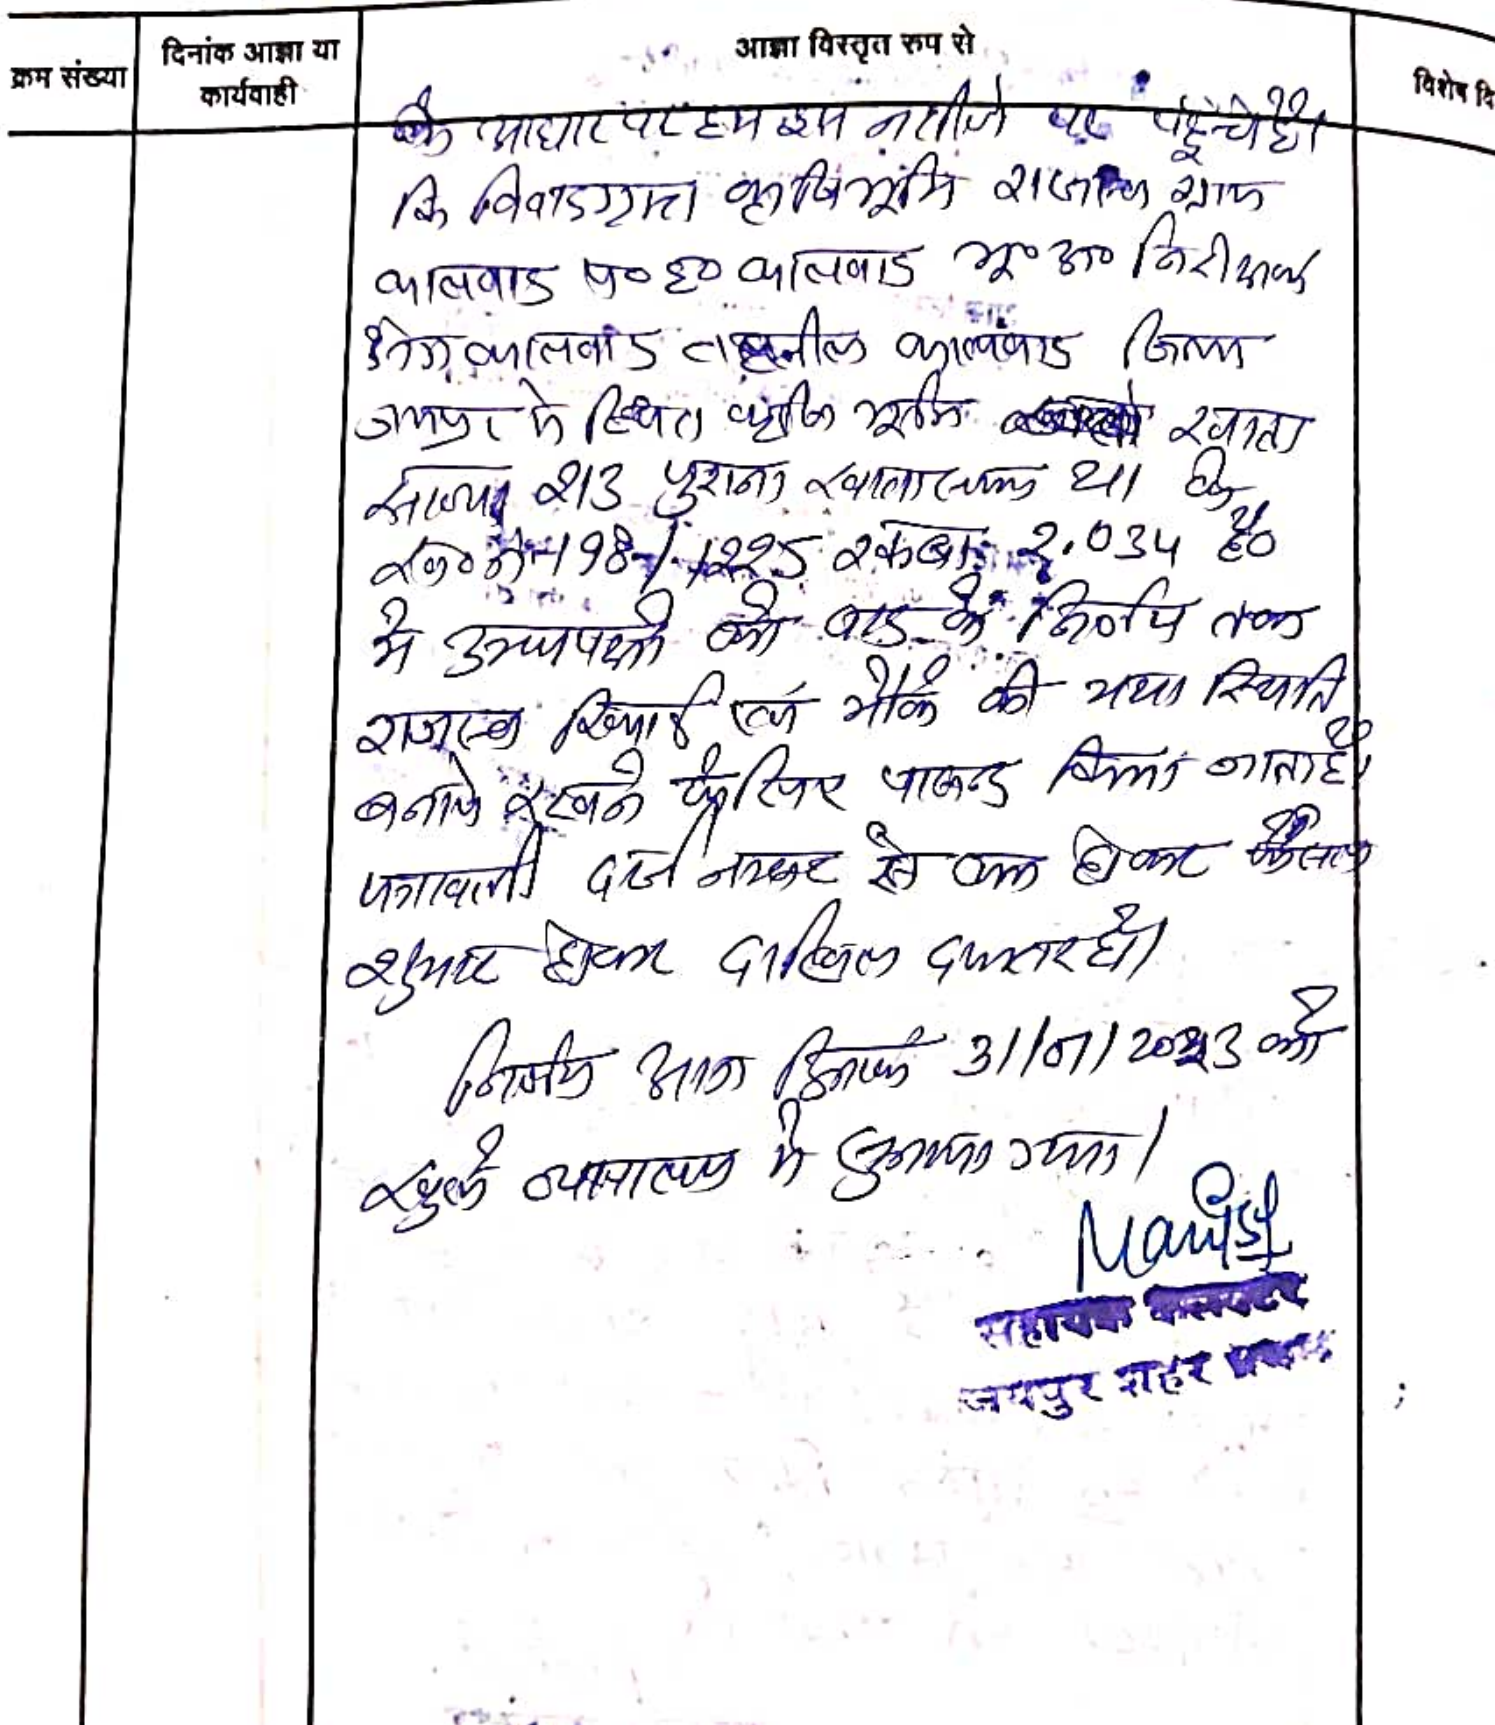 क्रम संख्या
दिनांक आज्ञा या
कार्यवाही
आज्ञा विस्तृत रूप से
विशेष वि
के आधार पर हम इस नतीजे पर पहुंचे है।
कि विवादग्रस्त कृषि भूमि राजस्व ग्राम
कालवाड प०ह० कालवाड भू०अ० निरीक्षक
क्षेत्र कालवाड तहसील कालवाड जिला
जयपुर मे स्थित कृषि भूमि खाता
संख्या 213 पुराना खाता संख्या 21 के
ख०न० 1225 रकबा 2.034 है०
मे उभयपक्षो को वाद के निर्णय तक
राजस्व रिकार्ड एवं मौके की यथा स्थिति
बनाये रखने के लिए पाबन्द किया जाता है।
पत्रावली दर्ज नम्बर से कम होकर फैसल
शुमार होकर दाखिल दफ्तर हो।
निर्णय आज दिनांक 31/01/2023 को
खुले न्यायालय मे सुनाया गया।
सहायक कलक्टर
जयपुर शहर